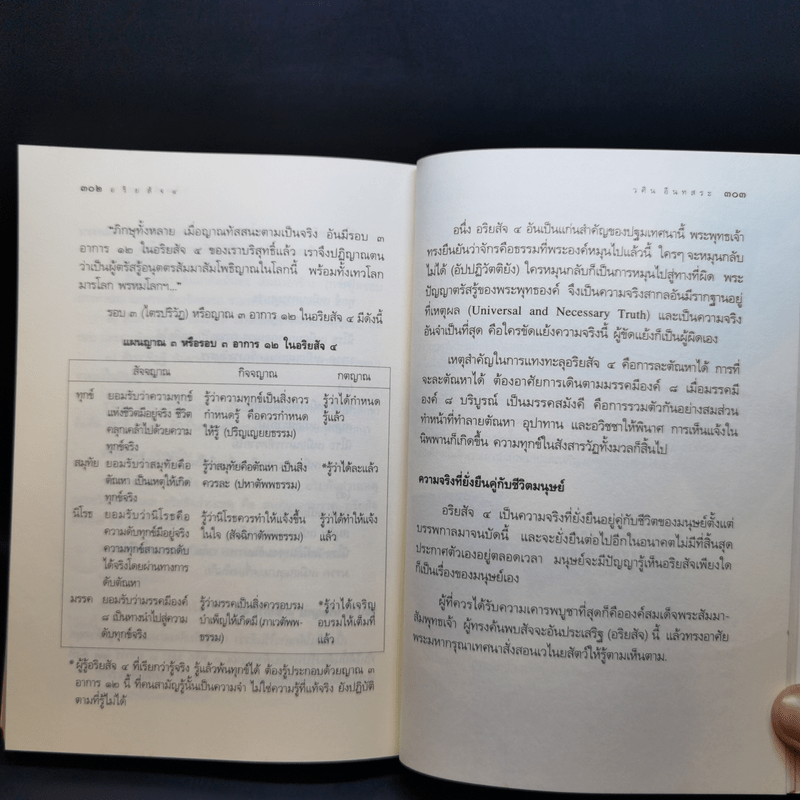 ๓๐๒ อริยสัจ ๔
"ภิกษุทั้งหลาย เมื่อญาณทัสสนะตามเป็นจริง อันมีรอบ ๓
อาการ ๑๒ ในอริยสัจ ๔ ของเราบริสุทธิ์แล้ว เราจึงปฏิญาณตน
ว่าเป็นผู้ตรัสรู้อนุตตรสัมมาสัมโพธิญาณในโลกนี้ พร้อมทั้งเทวโลก
มารโลก พรหมโลกฯ..."
รอบ ๓ (ไตรปริวัฏ) หรือญาณ ๓ อาการ ๑๒ ในอริยสัจ ๔ มีดังนี้
แผนญาณ ๓ หรือรอบ ๓ อาการ ๑๒ ในอริยสัจ ๔
สัจจญาณ กิจจญาณ กตญาณ
ทุกข์ ยอมรับว่าความทุกข์ รู้ว่าความทุกข์เป็นสิ่งควร รู้ว่าได้กำหนด
แห่งชีวิตมีอยู่จริง ชีวิต กำหนดรู้ คือควรกำหนด รู้แล้ว
คลุกเคล้าไปด้วยความ ให้รู้ (ปริญเญยยธรรม)
ทุกข์จริง
สมุทัย ยอมรับว่าสมุทัยคือ รู้ว่าสมุทัยคือตัณหา เป็นสิ่ง *รู้ว่าได้ละแล้ว
ตัณหา เป็นเหตุให้เกิด ควรละ (ปหาตัพพธรรม)
ทุกข์จริง
นิโรธ ยอมรับว่านิโรธคือ รู้ว่านิโรธควรทำให้แจ้งขึ้น รู้ว่าได้ทำให้แจ้ง
ความดับทุกข์มีอยู่จริง ในใจ (สัจฉิกาตัพพธรรม) แล้ว
ความทุกข์สามารถดับ
ได้จริงโดยผ่านทางการ
ดับตัณหา
มรรค ยอมรับว่ามรรคมีองค์ รู้ว่ามรรคเป็นสิ่งควรอบรม *รู้ว่าได้เจริญ
๘ เป็นทางนำไปสู่ความ บำเพ็ญให้เกิดมี (ภาเวตัพพ- อบรมให้เต็มที่
ดับทุกข์จริง ธรรม) แล้ว
* ผู้รู้อริยสัจ ๔ ที่เรียกว่ารู้จริง รู้แล้วพ้นทุกข์ได้ ต้องรู้ประกอบด้วยญาณ ๓
อาการ ๑๒ นี้ ที่คนสามัญรู้นั้นเป็นความจำ ไม่ใช่ความรู้ที่แท้จริง ยังปฏิบัติ
ตามที่รู้ไม่ได้
วศิน อินทสระ ๓๐๓
อนึ่ง อริยสัจ ๔ อันเป็นแก่นสำคัญของปฐมเทศนานี้ พระพุทธเจ้า
ทรงยืนยันว่าจักรคือธรรมที่พระองค์หมุนไปแล้วนี้ ใครๆ จะหมุนกลับ
ไม่ได้ (อัปปฏิวัตติยัง) ใครหมุนกลับก็เป็นการหมุนไปสู่ทางที่ผิด พระ
ปัญญาตรัสรู้ของพระพุทธองค์ จึงเป็นความจริงสากลอันมีรากฐานอยู่
ที่เหตุผล (Universal and Necessary Truth) และเป็นความจริง
อันจำเป็นที่สุด คือใครขัดแย้งความจริงนี้ ผู้ขัดแย้งก็เป็นผู้ผิดเอง
เหตุสำคัญในการแทงทะลุอริยสัจ ๔ คือการละตัณหาได้ การที่
จะละตัณหาได้ ต้องอาศัยการเดินตามมรรคมีองค์ ๘ เมื่อมรรคมี
องค์ ๘ บริบูรณ์ เป็นมรรคสมังคี คือการรวมตัวกันอย่างสมส่วน
ทำหน้าที่ทำลายตัณหา อุปาทาน และอวิชชาให้พินาศ การเห็นแจ้งใน
นิพพานก็เกิดขึ้น ความทุกข์ในสังสารวัฏทั้งมวลก็สิ้นไป
ความจริงที่ยั่งยืนคู่กับชีวิตมนุษย์
อริยสัจ ๔ เป็นความจริงที่ยั่งยืนอยู่คู่กับชีวิตของมนุษย์ตั้งแต่
บรรพกาลมาจนบัดนี้ และจะยั่งยืนต่อไปอีกในอนาคตไม่มีที่สิ้นสุด
ประกาศตัวเองอยู่ตลอดเวลา มนุษย์จะมีปัญญารู้เห็นอริยสัจเพียงใด
ก็เป็นเรื่องของมนุษย์เอง
ผู้ที่ควรได้รับความเคารพบูชาที่สุดก็คือองค์สมเด็จพระสัมมา-
สัมพุทธเจ้า ผู้ทรงค้นพบสัจจะอันประเสริฐ (อริยสัจ) นี้ แล้วทรงอาศัย
พระมหากรุณาเทศนาสั่งสอนเวไนยสัตว์ให้รู้ตามเห็นตาม.